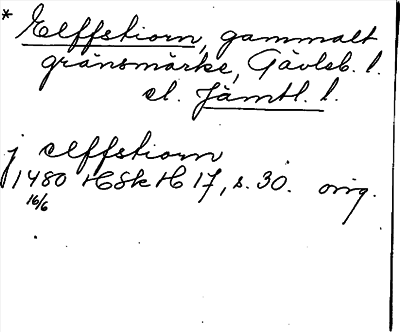 * Elffstiorn, gammalt
gränsmärke, Gävleb. l.
el. Jämtl. l.
j elffstiorn
1480 HSkH 17, s. 30. orig.
16/6